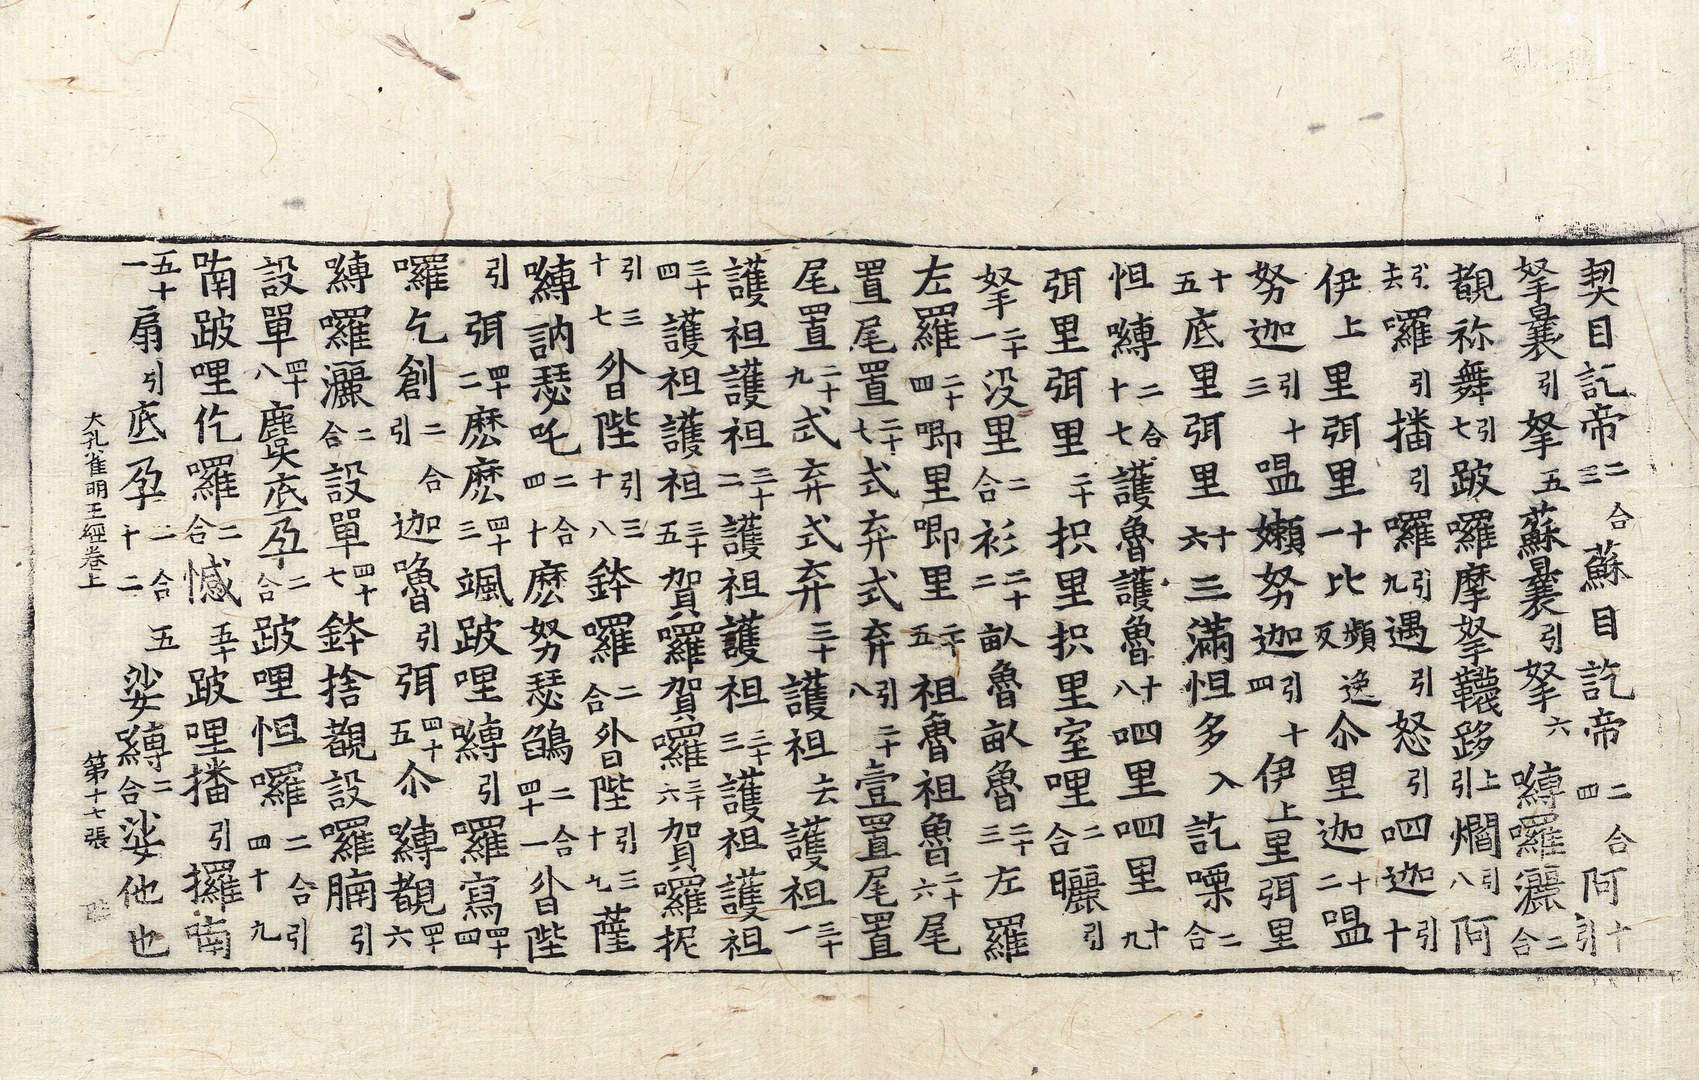 契目訖帝二合三蘇目訖帝二合四阿引十
拏曩引拏五蘇曩引拏六嚩囉灑二合
覩祢舞引七跛囉摩拏韈跢上引爛引八阿
引去囉引播引囉引九遇引怒引呬迦引十
伊上里弭里十一比頻逸反尒里迦十二嗢
努迦引十三嗢嬾努迦引十四伊上里弭里
十五底里弭里十六三滿怛多入訖㗚二合
怛嚩二合十七護魯護魯十八呬里呬里十九
弭里弭里二十枳里枳里室哩二合曬引
拏二十一没里二合衫二十二畝魯畝魯二十三左羅
左羅二十四唧里唧里二十五祖魯祖魯二十六尾
置尾置二十七式弃式弃引二十八壹置尾置
尾置二十九式弃式弃三十護祖去護祖三十一
護祖護祖三十二護祖護祖三十三護祖護祖
三十四護祖護祖三十五賀囉賀囉三十六賀囉抳
引三十七㘕陛引三十八鉢囉二合㘕陛引三十九薩
嚩訥瑟吒二合四十麽努瑟鵮二合四十一㘕陛
引弭四十二麽麽四十三颯跛哩嚩引囉寫四十四
囉乞創二合引迦嚕引弭四十五尒嚩覩四十六
嚩囉灑二合設單四十七鉢捨覩設囉腩引
設單四十八麌底孕二合跛哩怛囉二合引四十九
喃跛哩仡囉二合憾五十跛哩播引攞喃
五十一扇引底孕二合五十二娑嚩二合娑他也
大孔雀明王經卷上　第十七張